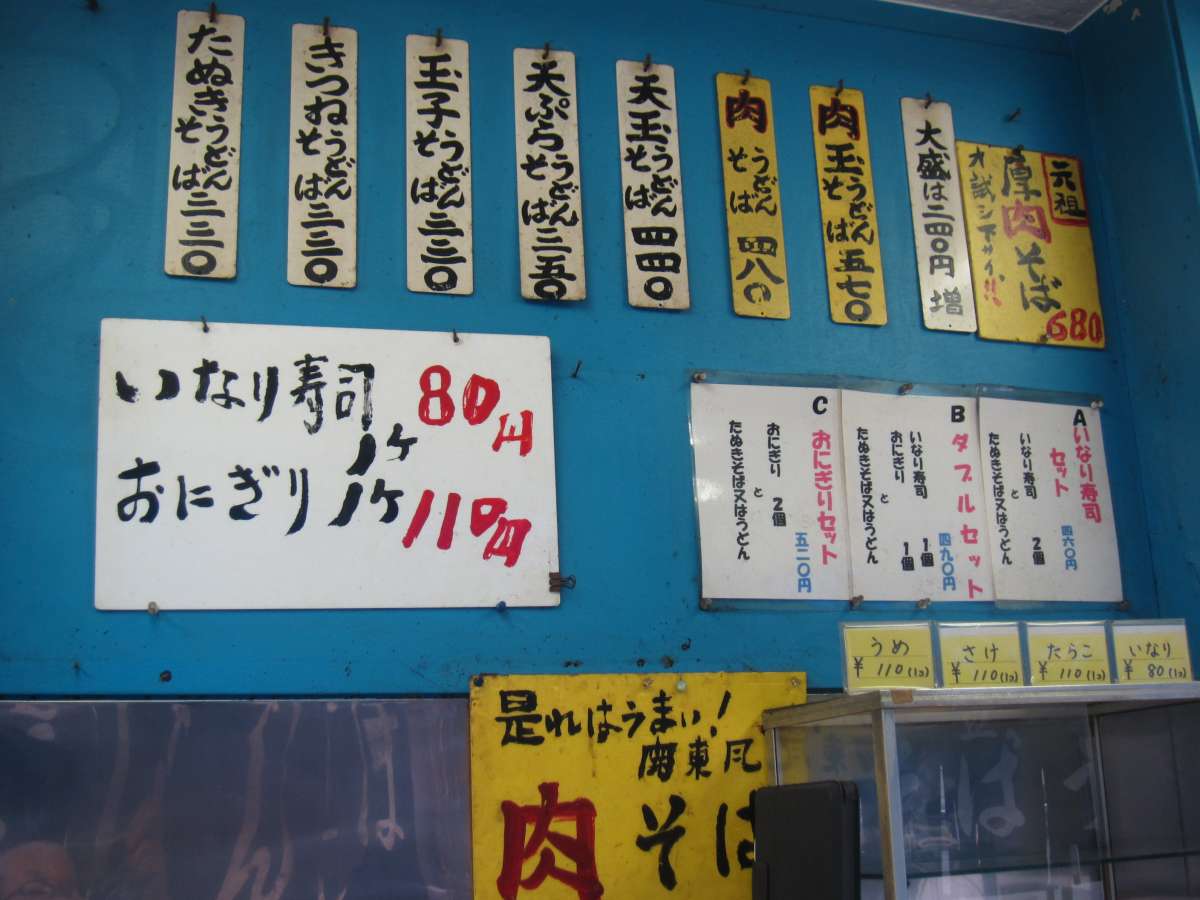 たぬきうどんそば三三〇
きつねうどんそば三三〇
玉子うどんそば三三〇
天ぷらうどんそば三五〇
天玉うどんそば四四〇
肉うどんそば四八〇
肉玉うどんそば五七〇
大盛は二四〇円増
元祖
厚肉そば
オ試シ下サイ!!
680
いなり寿司1ケ80円
おにぎり1ケ110円
A
いなり寿司
セット
四六〇円
いなり寿司 2個
と
たぬきそば又はうどん
B
ダブルセット
四九〇円
いなり寿司 1個
おにぎり 1個
と
たぬきそば又はうどん
C
おにぎりセット
五二〇円
おにぎり 2個
と
たぬきそば又はうどん
うめ
¥110(1コ)
さけ
¥110(1コ)
たらこ
¥110(1コ)
いなり
¥80(1コ)
是れはうまい!
関東風
肉そば